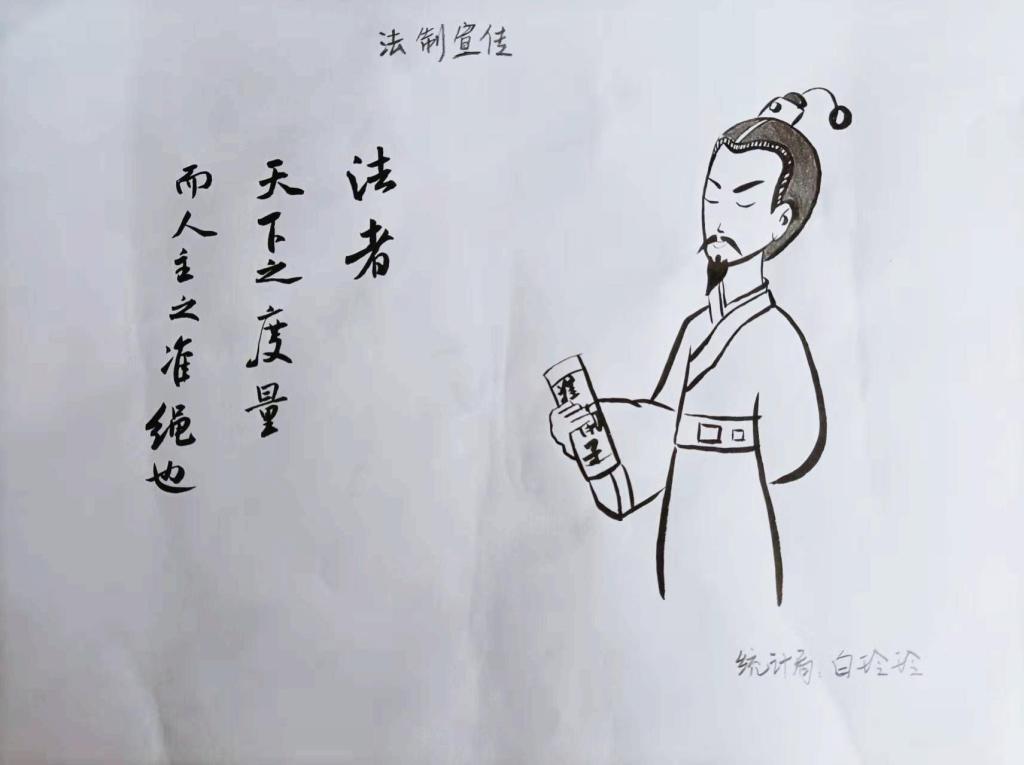 法制宣传
法者
天下之度量
而人主之准绳也
淮南子
统计局：白玲玲